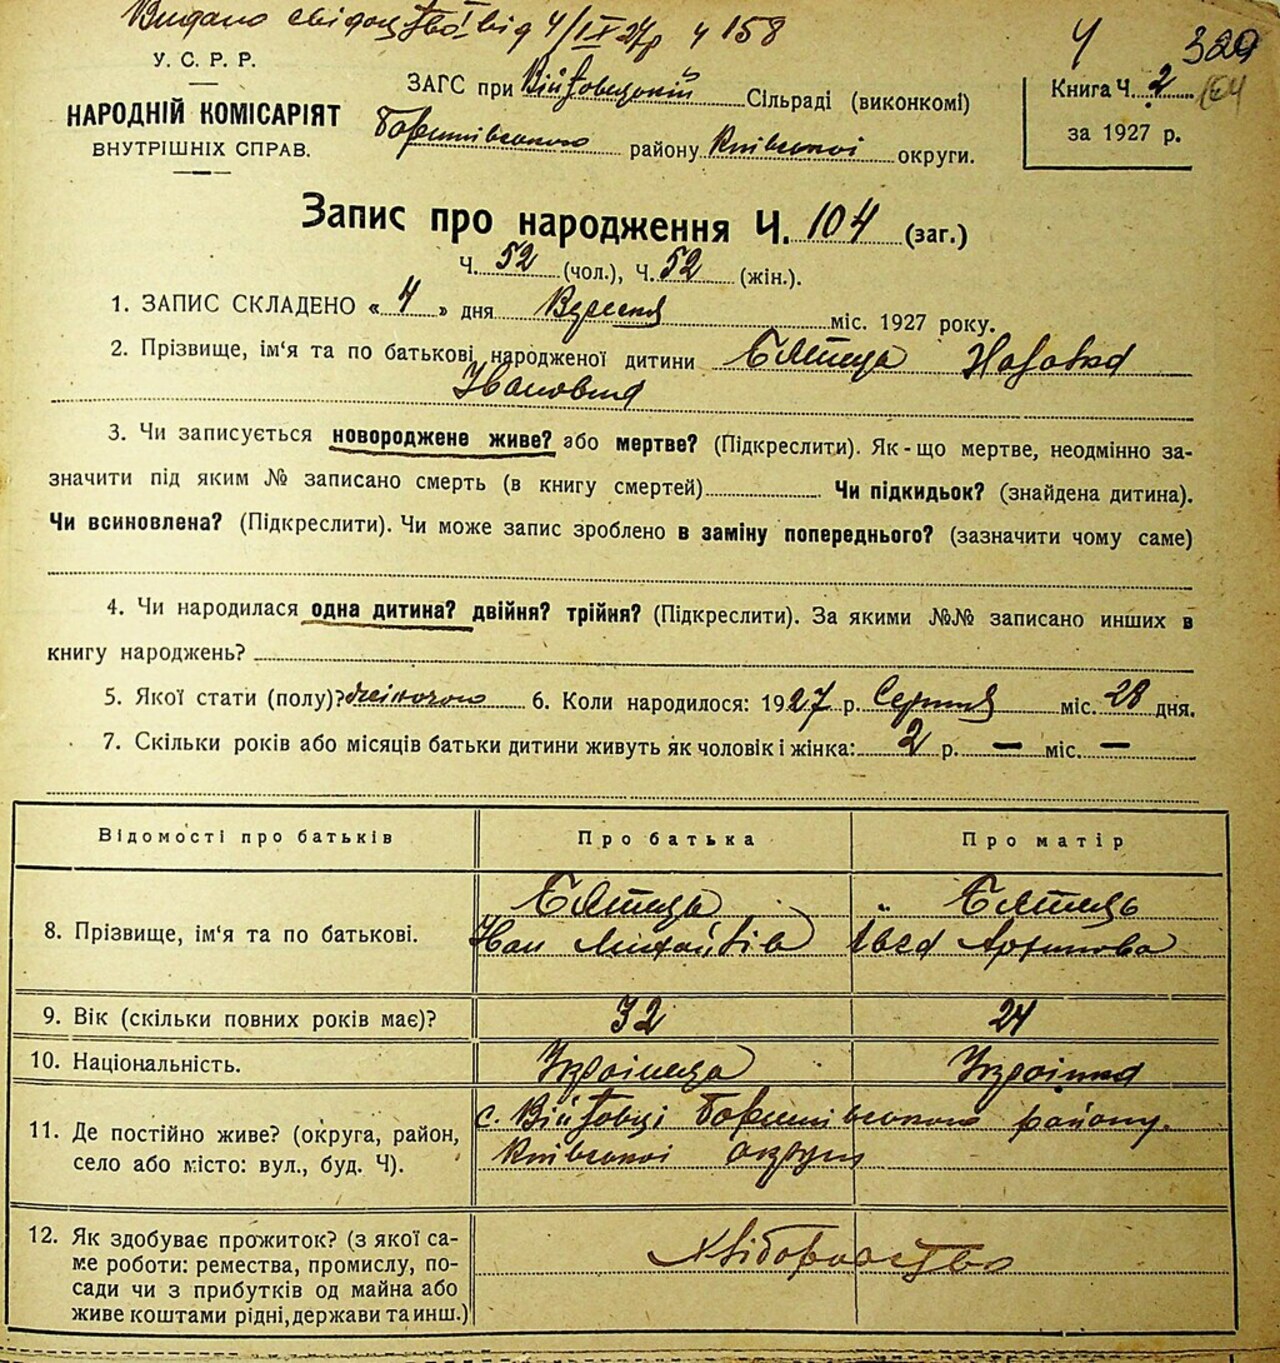 Видано свідоцтво від 4/IX 27р ч 158
Ч 329
У. С. Р. Р.
НАРОДНІЙ КОМІСАРІЯТ
ВНУТРІШНІХ СПРАВ.
ЗАГС при Війтовецькій Сільраді (виконкомі)
району Київської округи.
Книга Ч. 2 164
за 1927 р.
Запис про народження Ч. 104 (заг.)
Ч. 52 (чол.), Ч. 52 (жін.).
1. ЗАПИС СКЛАДЕНО « 4 » дня Вересня міс. 1927 року.
2. Прізвище, ім‘я та по батькові народженої дитини
Івановна
3. Чи записується новороджене живе? або мертве? (Підкреслити). Як-що мертве, неодмінно за-
значити під яким № записано смерть (в книгу смертей) Чи підкидьок? (знайдена дитина).
Чи всиновлена? (Підкреслити). Чи може запис зроблено в заміну попереднього? (зазначити чому саме)
4. Чи народилася одна дитина? двійня? трійня? (Підкреслити). За якими №№ записано инших в
книгу народжень?
5. Якої стати (полу)? жіночою 6. Коли народилося: 1927 р. Серпня міс. 28 дня.
7. Скільки років або місяців батьки дитини живуть як чоловік і жінка: 2 р. — міс. —
Відомості про батьків Про батька Про матір
8. Прізвище, ім‘я та по батькові.
Іван Михайлів
9. Вік (скільки повних років має)? 32 24
10. Національність. Українець Українка
11. Де постійно живе? (округа, район,
село або місто: вул., буд. Ч).
с. Війтовці району.
Київської округи
12. Як здобуває прожиток? (з якої са-
ме роботи: ремества, промислу, по-
сади чи з прибутків од майна або
живе коштами рідні, держави та инш.)
Хліборобство